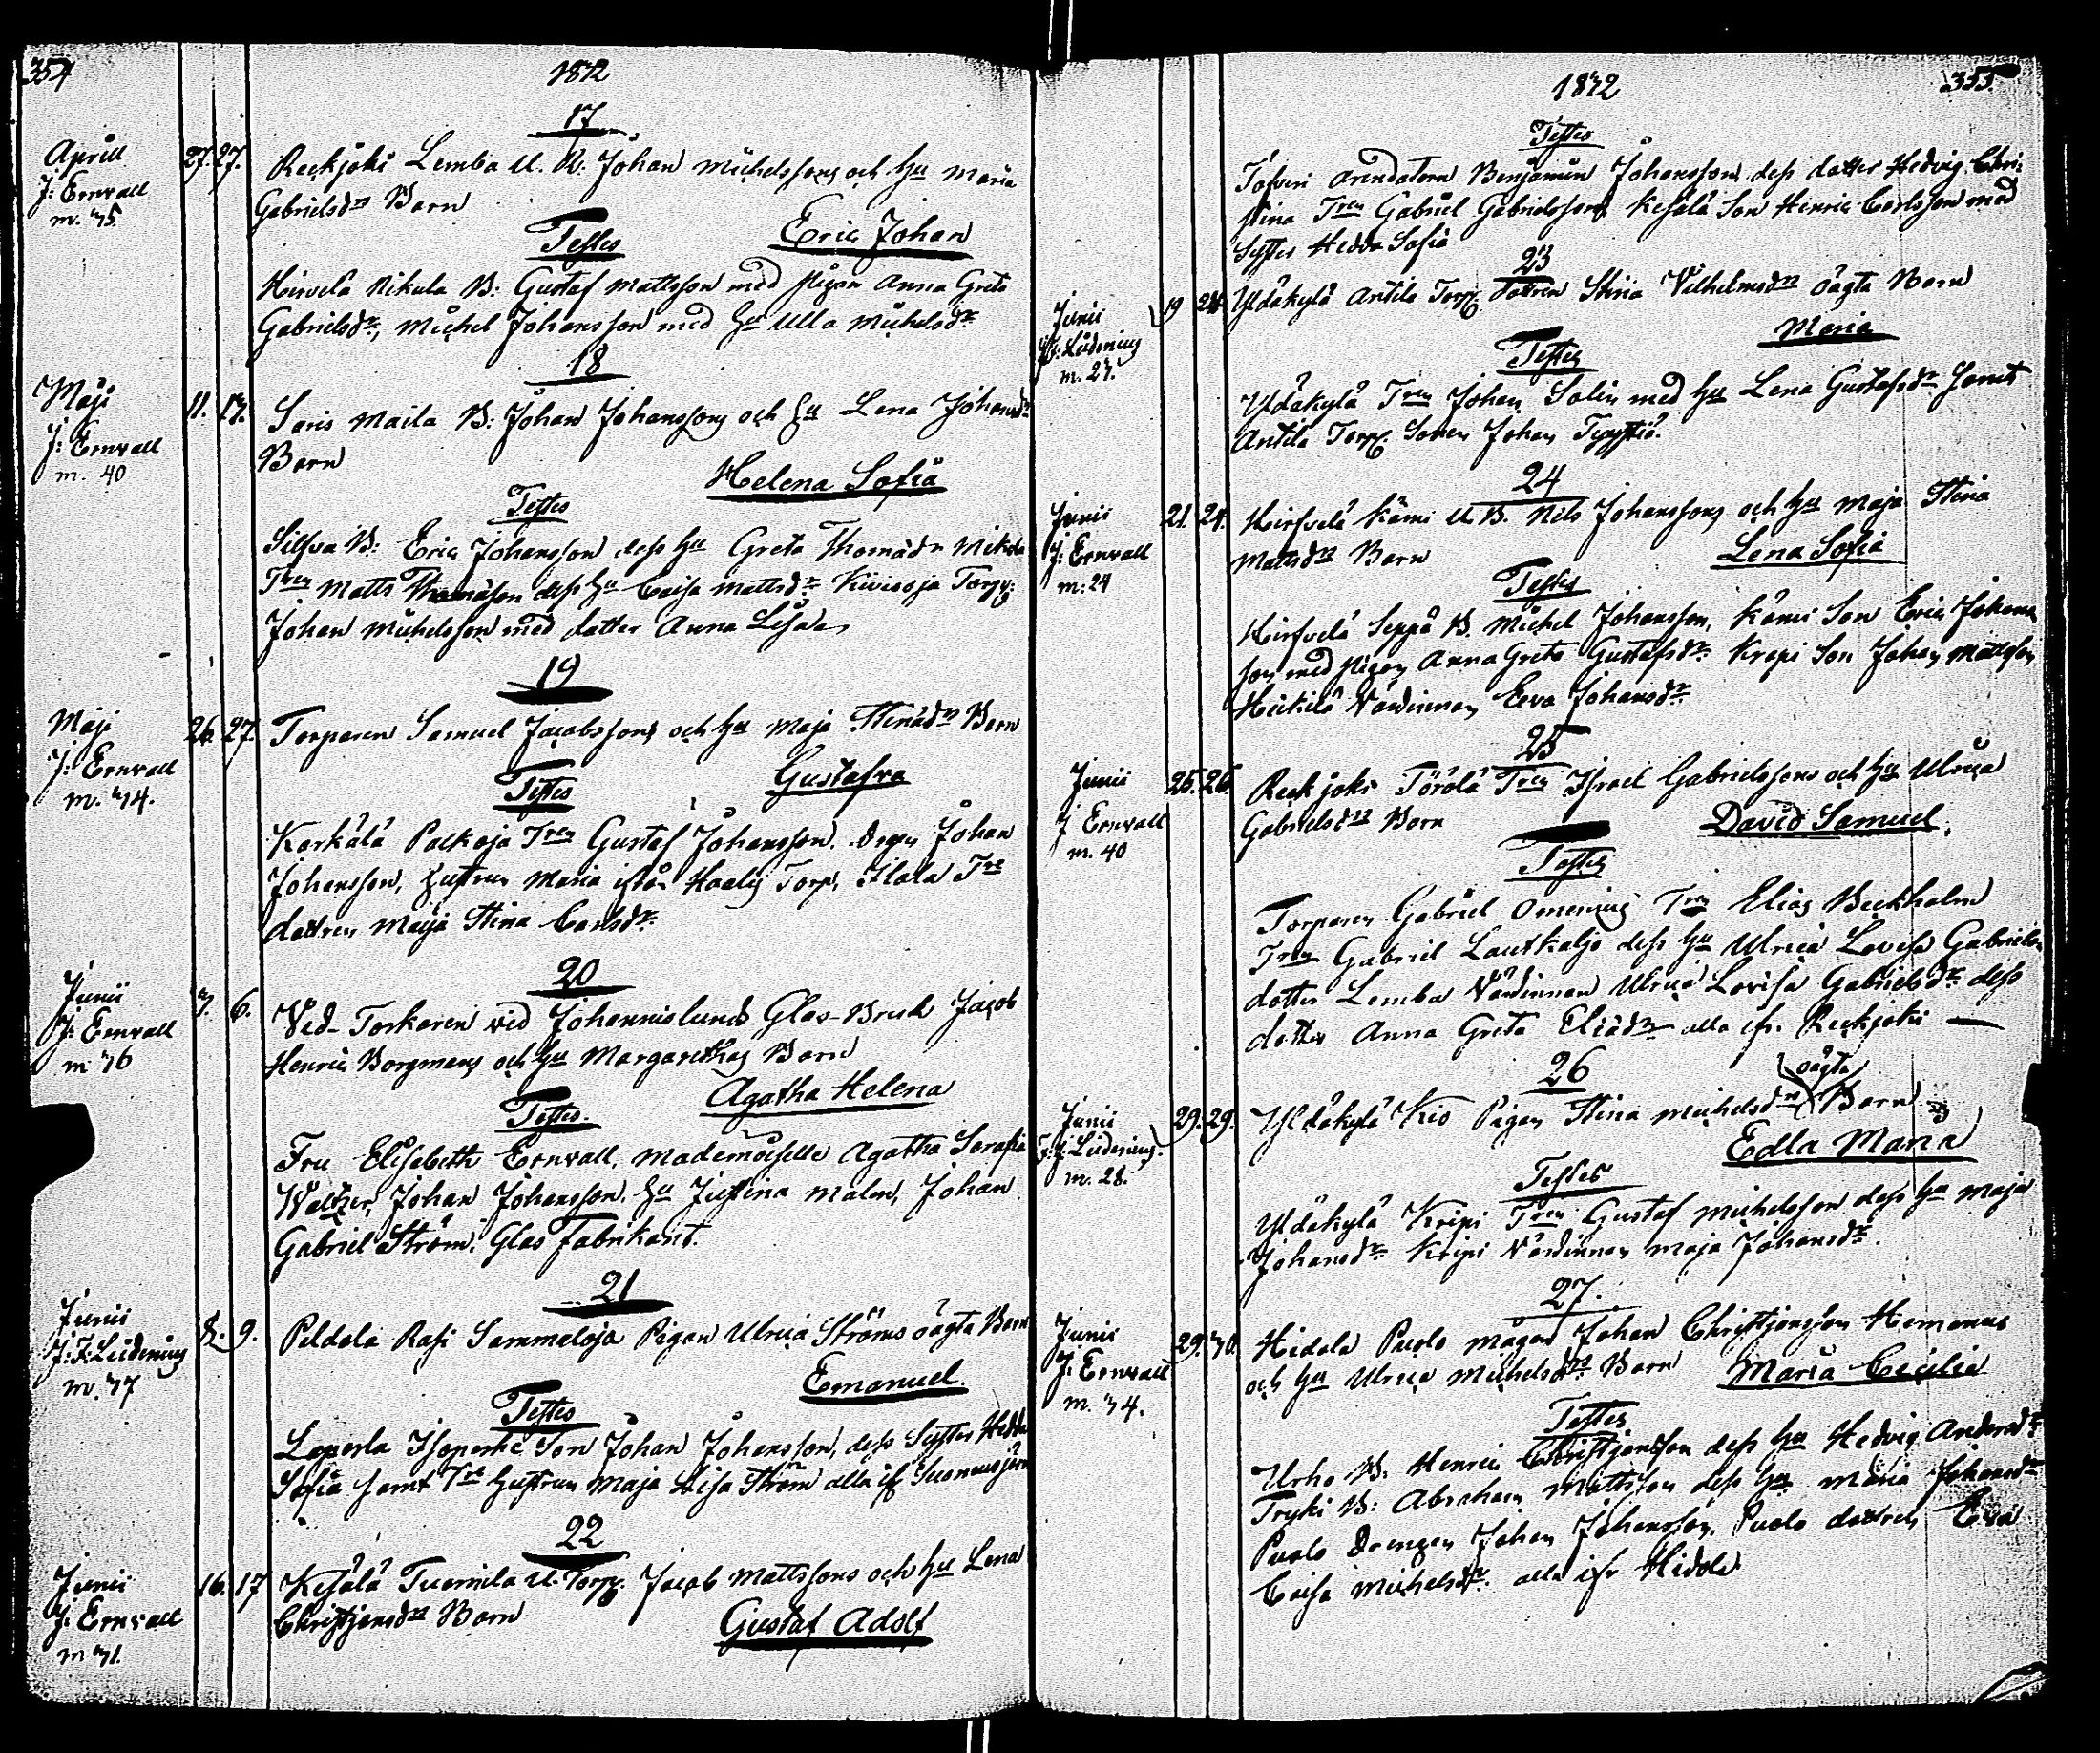 354
1812
17
Aprill
J: Ernvall
m. 35.
27. 27.
Reckjoki Lemba U. B: Johan Michelssons och hu Maria
Gabrielsdrs Barn
Testes
Eric Johan
Hirvelä Nikula B: Gustaf Mattsson med pigan Anna Greta
Gabrielsdr, Michel Johansson med hu Ulla Michelsdr
18
Maji
J: Ernvall
m. 40
11. 17.
Saris Maila B: Johan Johanssons och hu Lena Johansdrs
Barn
Helena Sofia
Testes
Silfva B: Eric Johansson dess hu Greta Thomädr Mikola
Tren Matts Thomäson dess hu Caisa Mattsdr Kivioja Torp:
Johan Michelsson med dotter Anna Lisa
19
Maji
J: Ernvall
m. 34.
26. 27.
Torparen Samuel Jacobssons och hu Maja Stinädrs Barn
Testes
Gustafva
Karkälä Palkoja Tren Gustaf Johansson. Drgn Johan
Johansson, hustrun Maria ifrån Haalis Torp, Alala Tre
dottren Maija Stina Carlsdr
20
Junii
J: Ernvall
m 36
3. 6.
Ved-Torkaren vid Johannislunds Glas-Bruk Jacob
Henric Borgmans och hu Margarethas Barn
Testes.
Agatha Helena
Fru Elisabeth Ernvall, Mademoiselle Agatha Serafia
Weltzer, Johan Johansson. hu Justina Malm, Johan
Gabriel Ström. Glas Fabrikant.
21
Junii
J: F: Lidenius
m. 37
8. 9.
Peldola Rasi Sammaloja Pigan Ulrica Ströms oägta Barn
Emanuel.
Testes
Leperla Isoperhe Son Johan Johansson, dess Syster Hedda
Sofia samt Tre hustrun Maja Lisa Ström alla if Suomusjärvi
22
Junii
J: Ernvall
m 31.
16. 17
Kesälä Tuomila U. Torp. Jacob Mattssons och hu Lena
Christjansdrs Barn
Gustaf Adolf
1812
355.
Testes
Tofveri Arendatorn Benjamin Johansson dess dotter Hedvig Chri-
stina Tren Gabriel Gabrielsson, Kesälä Son Henric Carlsson med
Syster Hedda Sofia
23
Junii
J: F: Lidenius
m. 27.
19 24
Yldäkylä Antila Torp. Dottren Stina Vilhelmsdrs oägta Barn
Maria
Testes
Yldäkylä Tren Johan Salin med hu Lena Gustafsdr samt
Antila Torp. Sonen Johan
24
Junii
J: Ernvall
m: 24
21. 24.
Hirfvelä Kämi U. B. Nils Johanssons och hu Maja Stina
Mattsdrs Barn
Lena Sofia
Testes
Hirfvelä Seppä B. Michel Johansson, Kämi Son Eric Johans-
son med pigan Anna Greta Gustafsdr Krapi Son Johan Mattsson
Heikilä Värdinnan Eeva Johansdr
25
Junii
J Ernvall
m. 40
25. 26.
Reckjoki Törölä Tren Israel Gabrielssons och hu Ulrica
Gabrielsdrs Barn
David Samuel.
Testes
Torparen Gabriel Omenius Tren Elias Beckholm
Tren Gabriel Lautkaljo dess hu Ulrica Lovisa Gabriels-
dotter Lemba Värdinnan Ulrica Lovisa Gabrielsdr dess
dotter Anna Greta Eliädr alla ifr. Reckjoki
26
Junii
J: F: Lidenius.
m. 28.
29. 29.
oägta
Yldäkylä Kio Pigan Stina Michelsdrs Barn
Edla Maria
Testes
Yldäkylä Kripi Tren Gustaf Michelsson dess hu Maja
Johansdr Kripi Värdinnan Maja Johansdr.
27.
Junii
J. Ernvall
m. 34.
29. 30.
Hidola Puolo mågen Johan Christjansson Hemanus
och hu Ulrica Michelsdrs Barn
Maria Cecilia
Testes
Urho B. Henric Christjansson dess hu Hedvig Andersdr
Tryki B: Abraham Mattsson dess hu Maria Johansdr
Puolo Drengen Johan Johansson, Puolo dottren Eva
Caisa Michelsdr. alla ifr Hidola